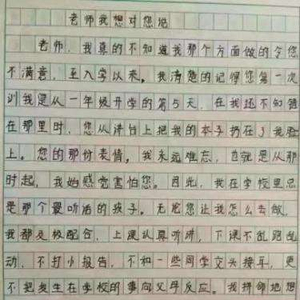 老师我想对您说
老师，我真的不知道我那个方面做的令您
不满意，至入学以来。我清楚的记得您第一次
训我是从一年级开学的第5天，在我还不知错
在那里时，您从讲台上把我的本子扔在了我脸
上。您的那份表情，我永远难忘，也就是从那
时起，我始感觉害怕您。因此，我在学校里总
是那个最听话的孩子。无论您让我怎么去做，
我都及极配合，上课认真听讲，下课不乱跑乱
动，不打小报告，不和一些同学交头接耳，更
不把发生在学校的事向父母反应。我持别地想